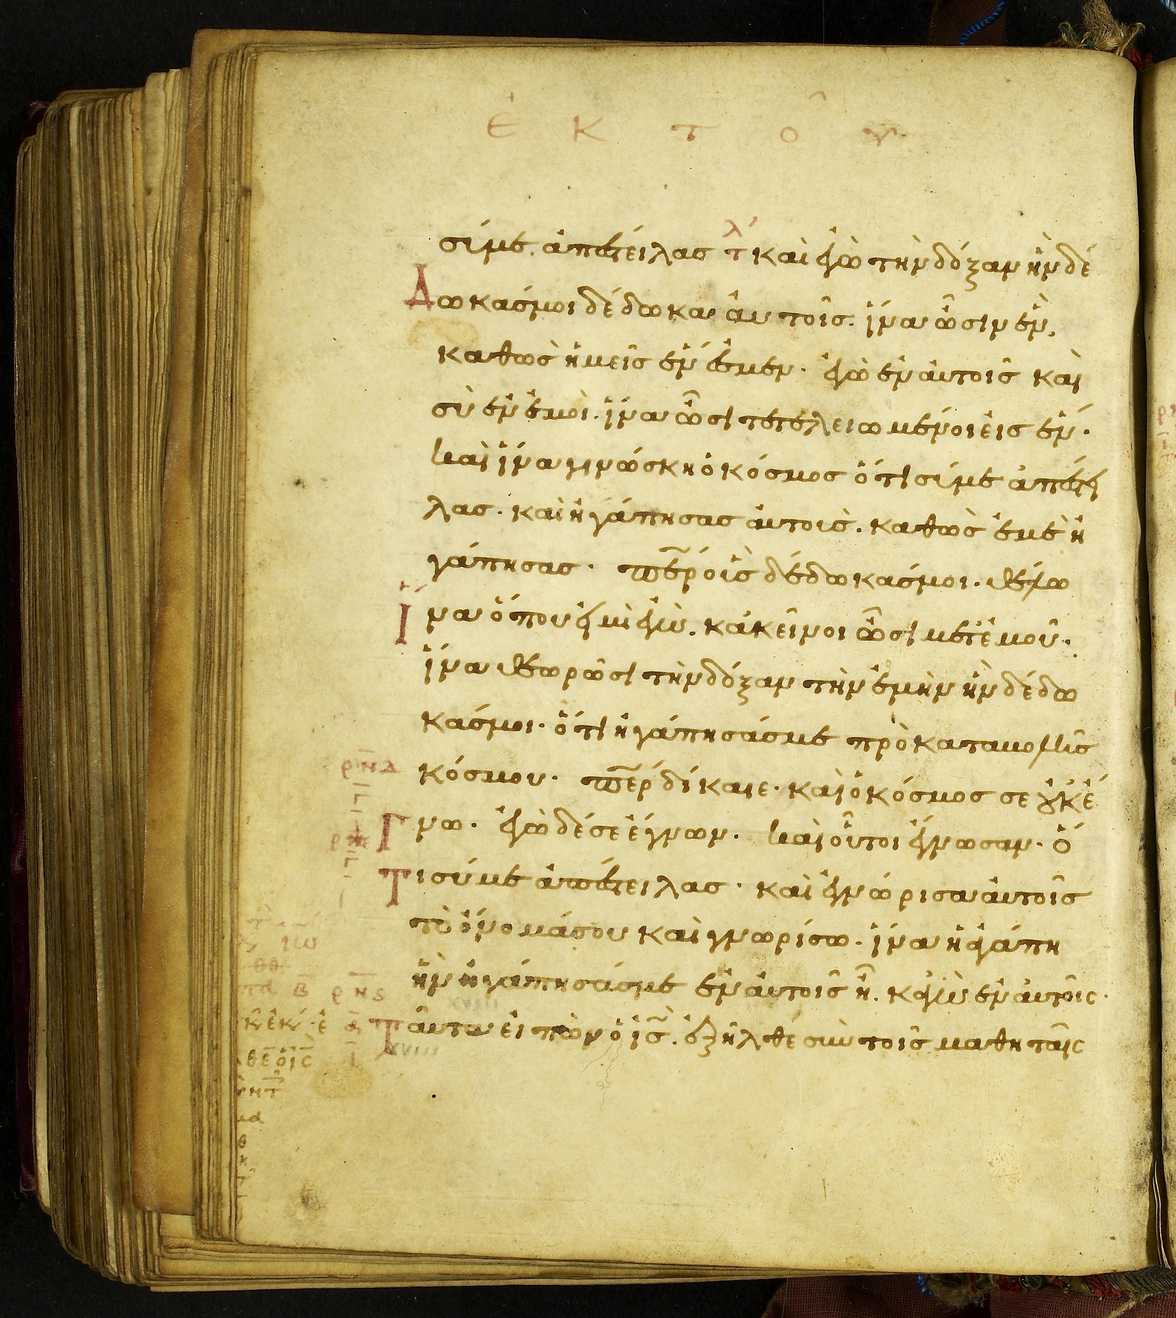 ἐ κ τ ο ῦ
λ
σύ με ἀπέστειλας τ καὶ ἐγὼ τὴν δόξαν ἣν δέ
δωκάς μοι δέδωκα αὐτοῖς. ἵνα ὦσιν ἕν,
καθὼς ἡμεῖς ἕν ἐσμεν· ἐγὼ ἐν αὐτοῖς καὶ
σὺ ἐν ἐμοί. ἵνα ὦσι τετελειωμένοι εἰς ἕν·
καὶ ἵνα γινώσκη ὁ κόσμος ὅτι σύ με ἀπέστει
λας· καὶ ἠγάπησας αὐτοὺς. καθὼς ἐμὲ ἠ
γάπησας· περ οὓς δέδωκάς μοι. θέλω
ἵνα ὅπου εἰμὶ ἐγὼ. κἀκεῖνοι ὦσι μετ ἐμοῦ·
ἵνα θεωρῶσι τὴν δόξαν τὴν ἐμὴν ἣν δέδω
κάς μοι· ὅτι ἠγάπησάς με πρὸ καταβολῆς
κόσμου· περ δίκαιε· καὶ ὁ κόσμος σε οὐκ ἔ
γνω· ἐγὼ δέ σε ἔγνων. καὶ οὗτοι ἔγνωσαν· ὅ
τι σύ με ἀπέστειλας· καὶ ἐγνώρισα αὐτοῖς
τὸ ὄνομά σου καὶ γνωρίσω. ἵνα ἡ ἀγάπη
ἣν ἠγάπησάς με ἐν αὐτοῖς ἦ. κἀγὼ ἐν αὐτοῖς·
ταῦτα εἰπὼν ὁ ις. ἐξῆλθε σὺν τοῖς μαθηταῖς
ρνδ
ρνς
XVIII